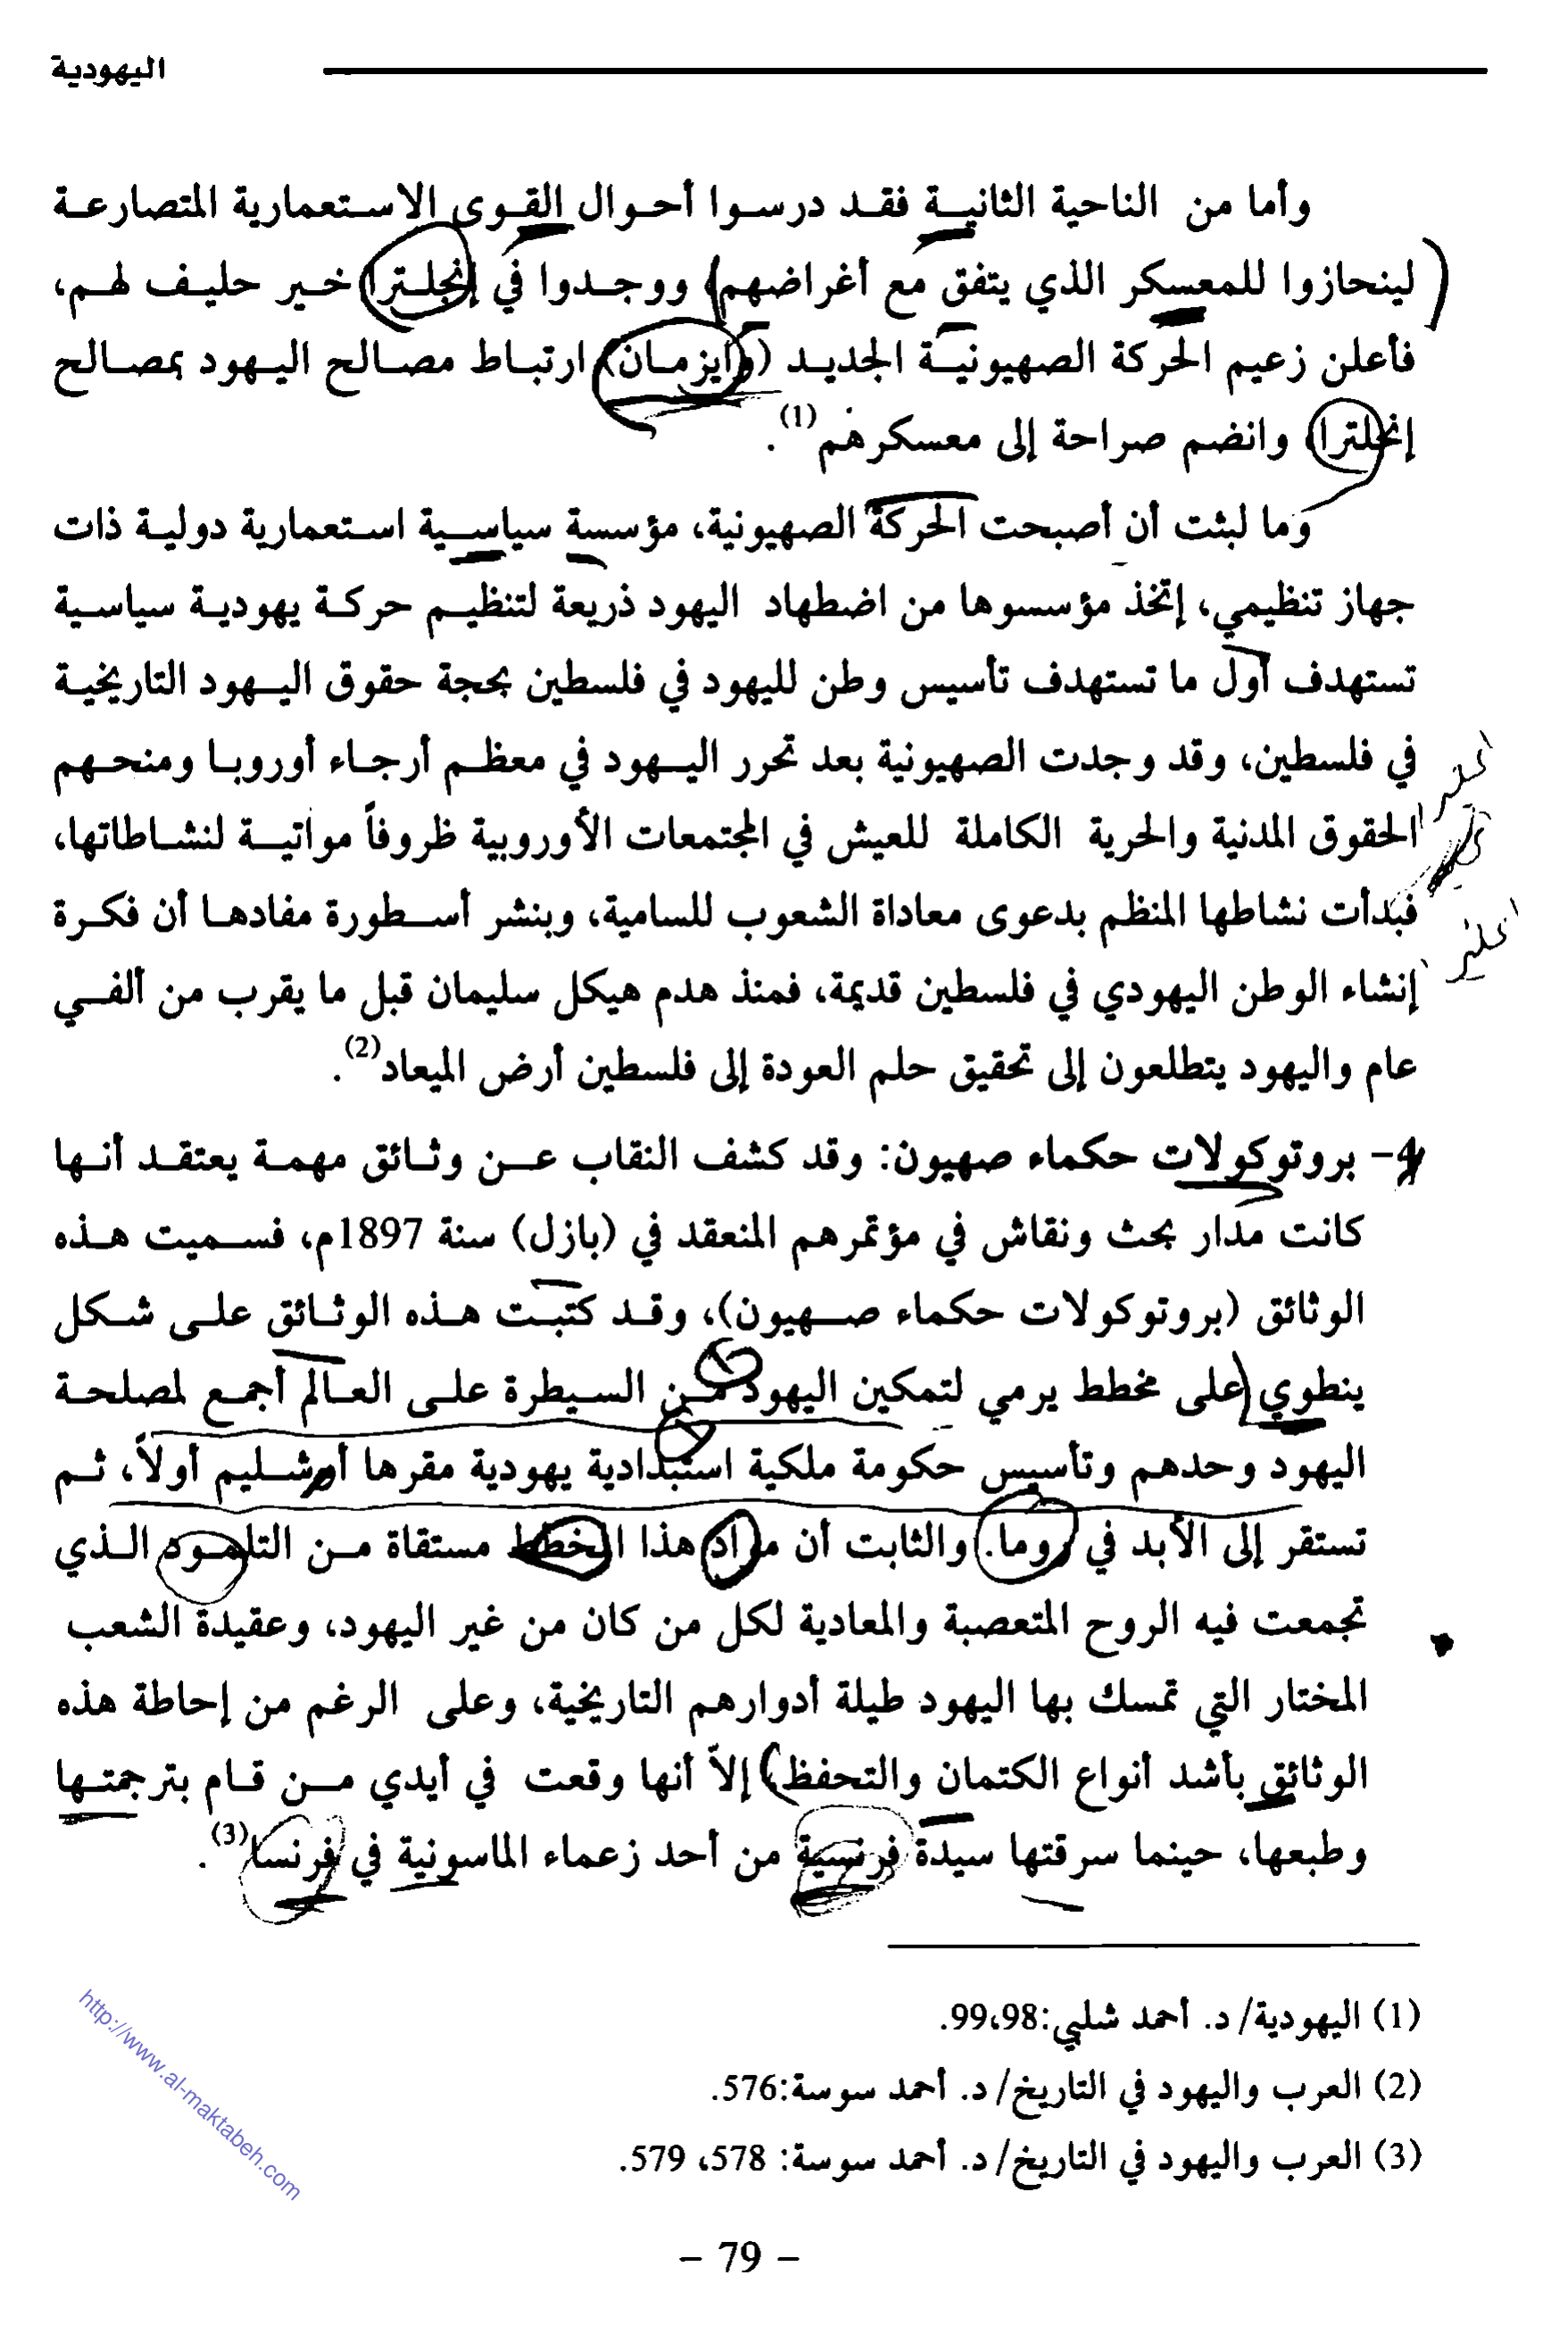 اليهودية
وأما من الناحية الثانية فقد درسوا أحوال القوى الاستعمارية المتصارعة
(لينحازوا للمعسكر الذي يتفق مع أغراضهم) ووجدوا في إنجلترا خير حليف لهم،
فأعلن زعيم الحركة الصهيونية الجديد (وايزمان) ارتباط مصالح اليهود بمصالح
إنجلترا، وانضم صراحة إلى معسكرهم(1).
وما لبثت أن أصبحت الحركة الصهيونية، مؤسسة سياسية استعمارية دولية ذات
جهاز تنظيمي، إتخذ مؤسسوها من اضطهاد اليهود ذريعة لتنظيم حركة يهودية سياسية
تستهدف أول ما تستهدف تأسيس وطن لليهود في فلسطين بحجة حقوق اليهود التاريخية
في فلسطين، وقد وجدت الصهيونية بعد تحرر اليهود في معظم أرجاء أوروبا ومنحهم
الحقوق المدنية والحرية الكاملة للعيش في المجتمعات الأوروبية ظروفاً مواتية لنشاطاتها،
فبدأت نشاطها المنظم بدعوى معاداة الشعوب للسامية، وبنشر أسطورة مفادها أن فكرة
إنشاء الوطن اليهودي في فلسطين قديمة، فمنذ هدم هيكل سليمان قبل ما يقرب من ألفي
عام واليهود يتطلعون إلى تحقيق حلم العودة إلى فلسطين أرض الميعاد(2).
4- بروتوكولات حكماء صهيون: وقد كشف النقاب عن وثائق مهمة يعتقد أنها
كانت مدار بحث ونقاش في مؤتمرهم المنعقد في (بازل) سنة 1897م، فسميت هذه
الوثائق (بروتوكولات حكماء صهيون)، وقد كتبت هذه الوثائق على شكل
ينطوي (على مخطط يرمي لتمكين اليهود من السيطرة على العالم أجمع لمصلحة
اليهود وحدهم وتأسيس حكومة ملكية استبدادية يهودية مقرها أورشليم أولاً، ثم
تستقر إلى الأبد في روما. والثابت أن مراد هذا المخطط مستقاة من التلمود الذي
تجمعت فيه الروح المتعصبة والمعادية لكل من كان من غير اليهود، وعقيدة الشعب
المختار التي تمسك بها اليهود طيلة أدوارهم التاريخية، وعلى الرغم من إحاطة هذه
الوثائق بأشد أنواع الكتمان والتحفظ) إلاّ أنها وقعت في أيدي من قام بترجمتها
وطبعها، حينما سرقتها سيدة فرنسية من أحد زعماء الماسونية في فرنسا(3).
(1) اليهودية/ د. أحمد شلبي:98،99.
(2) العرب واليهود في التاريخ/ د. أحمد سوسة:576.
(3) العرب واليهود في التاريخ/ د. أحمد سوسة: 578، 579.
http://www.al-maktabeh.com
- 79 -